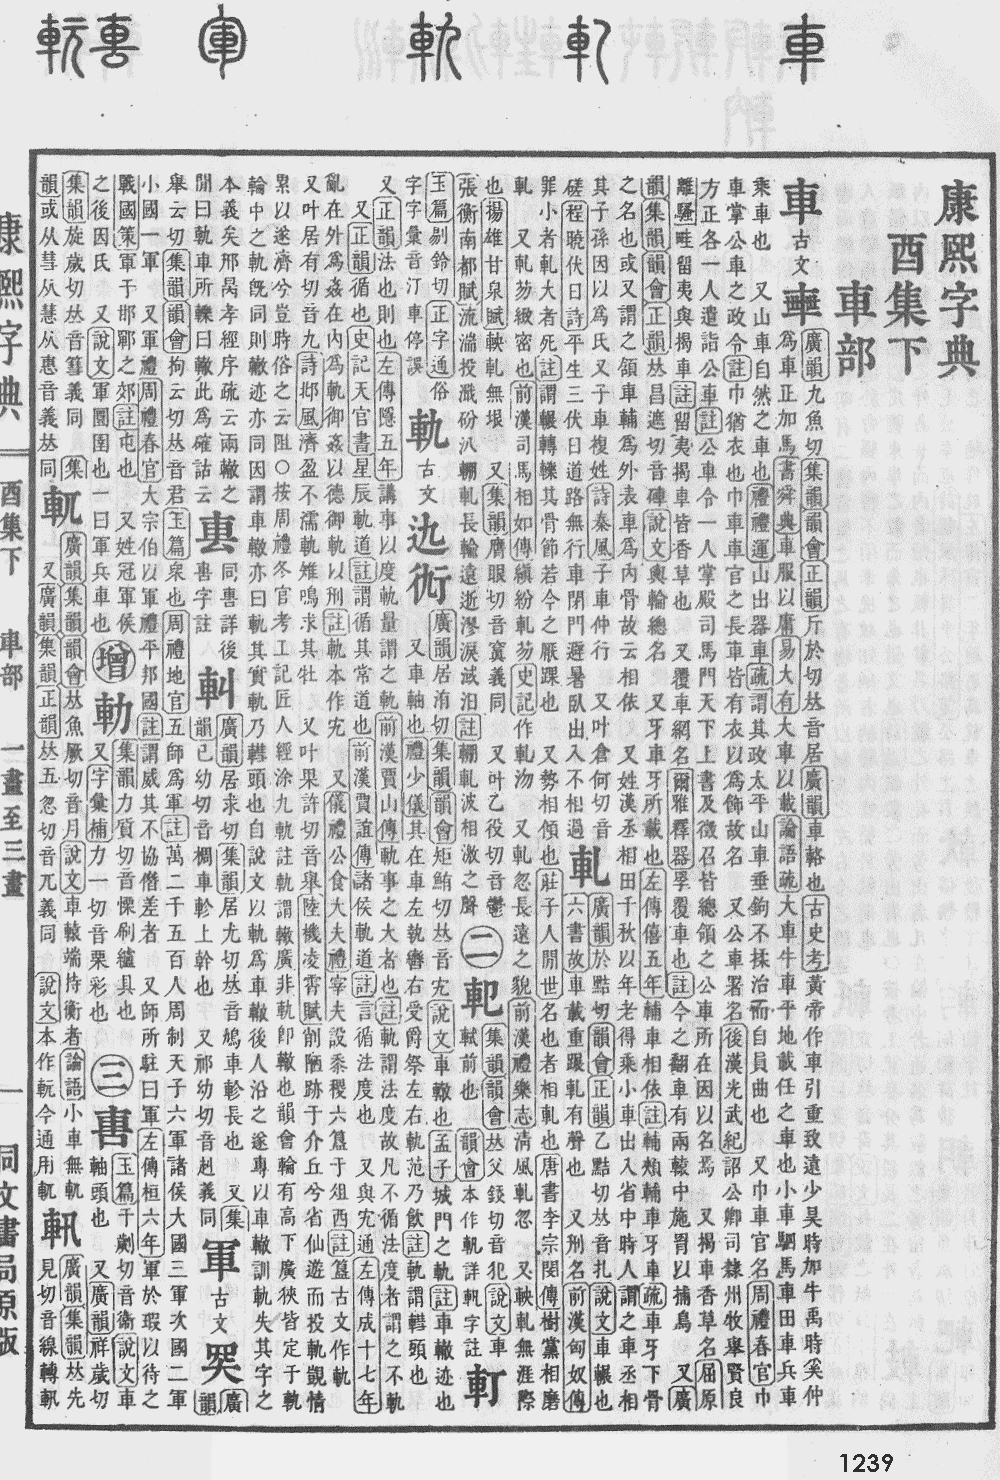 車 軋 軌 軍 軎 軏
康熙字典
酉集下
車部
車古文
廣韻九魚切集韻韻會正韻斤於切𠀤音居廣韻車輅也古史考黃帝作車引重致遠少昊時加牛禹時奚仲
爲車正加馬書舜典車服以庸易大有大車以載論語疏大車牛車平地載任之車也小車駟馬車田車兵車
乘車也 又山車自然之車也禮禮運山出器車疏謂其政太平山車垂鉤不揉治而自員曲也 又巾車官名周禮春官巾
車掌公車之政令註巾猶衣也巾車車官之長車皆有衣以爲飾故名 又公車署名後漢光武紀詔公卿司隸州牧舉賢良
方正各一人遣詣公車註公車令一人掌殿司馬門天下上書及徵召皆總領之公車所在因以名焉 又揭車香草名屈原
離騷畦留夷與揭車註留夷揭車皆香草也 又覆車網名爾雅釋器罦覆車也註今之翻車有兩轅中施罥以捕鳥 又廣
韻集韻韻會正韻𠀤昌遮切音硨說文輿輪總名 又牙車牙所載也左傳僖五年輔車相依註輔頰輔車牙車疏車牙下骨
之名也或又謂之頷車輔爲外表車爲內骨故云相依 又姓漢丞相田千秋以年老得乘小車出入省中時人謂之車丞相
其子孫因以爲氏又子車複姓詩秦風子車仲行 又叶倉何切音
磋程曉伏日詩平生三伏日道路無行車閉門避暑臥出入不相過
軋
廣韻於黠切韻會正韻乙黠切𠀤音扎說文車輾也
六書故車載重踐軋有聲也 又刑名前漢匈奴傳
罪小者軋大者死註謂輾轉轢其骨節若今之厭踝也 又勢相傾也莊子人閒世名也者相軋也唐書李宗閔傳樹黨相磨
軋 又軋芴緻密也前漢司馬相如傳縝紛軋芴史記作軋沕 又軋忽長遠之貌前漢禮樂志清風軋忽 又軮軋無涯際
也揚雄甘泉賦軮軋無垠 又集韻膺眼切音 義同 又叶乙役切音鬱
張衡南都賦流湍投濈砏汃輣軋長輸遠逝漻淚淢汨註輣軋波相激之聲
二
軓
集韻韻會𠀤父錽切音犯說文車
軾前也 韻會本作軋詳軓字註
玉篇剔鈴切正字通俗
字字彙音汀車停誤
軌古文
廣韻居洧切集韻韻會矩鮪切𠀤音宄說文車轍也孟子城門之軌註車轍迹也
又車軸也禮少儀其在車左執轡右受爵祭左右軌范乃飮註軌謂轊頭也
又正韻法也則也左傳隱五年講事以度軌量謂之軌前漢賈山傳軌事之大者也註軌謂法度故凡不循法度者謂之不軌
又正韻循也史記天官書星辰軌道註謂循其常道也前漢賈誼傳諸侯軌道註言循法度也 又與宄通左傳成十七年
亂在外爲姦在內爲軌御姦以德御軌以刑註軌本作宄 又儀禮公食大夫禮宰夫設黍稷六簋于俎西註簋古文作軌
又叶居有切音九詩邶風濟盈不濡軌雉鳴求其牡 又叶果許切音舉陸機凌霄賦削陋跡于介丘兮省仙遊而投軌覿情
累以遂濟兮豈時俗之云阻○按周禮冬官考工記匠人經涂九軌註軌謂轍廣非軌卽轍也韻會輪有高下廣狹皆定于軌
輪中之軌旣同則轍迹亦同因謂車轍亦曰軌其實軌乃轊頭也自說文以軌爲車轍後人沿之遂專以車轍訓軌失其字之
本義矣邢昺孝經序疏云兩轍之
閒曰軌車所轢曰轍此爲確詁云
同軎詳後
軎字註
廣韻居求切集韻居尤切𠀤音鳩車軫長也 又集
韻已幼切音樛車軫上榦也 又祁幼切音赳義同
軍古文
廣
韻
舉云切集韻韻會拘云切𠀤音君玉篇衆也周禮地官五師爲軍註萬二千五百人周制天子六軍諸侯大國三軍次國二軍
小國一軍 又軍禮周禮春官大宗伯以軍禮平邦國註謂威其不協僭差者 又師所駐曰軍左傳桓六年軍於瑕以待之
戰國策軍于邯鄲之郊註屯也 又姓冠軍侯
之後因氏 又說文軍圜圍也一曰軍兵車也
增
集韻力質切音慄刷繀具也
又字彙補力一切音栗彩也
三
軎
玉篇于劌切音衞說文車
軸頭也 又廣韻祥歲切
集韻旋歲切𠀤音篲義同 集
韻或从彗从慧从惠音義𠀤同
軏
廣韻集韻韻會𠀤魚厥切音月說文車轅端持衡者論語小車無軏
又廣韻集韻正韻𠀤五忽切音兀義同 說文本作 今通用軏
廣韻集韻𠀤先
見切音線轉
康熙字典
酉集下 車部 一畫至三畫
一
同文書局原版
1239